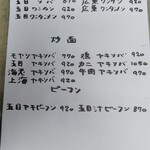 五目ソバ 970 広東ソバ 920
五目ワンタン 920 広東ワンタメン 970
五目ワンタメン 970
炒面
モヤシヤキソバ 870 焼ヤキソバ 920
五目ヤキソバ 920 カニヤキソバ 1050
海老ヤキソバ 970 牛肉ヤキソバ 970
上海ヤキソバ 920
ビーフン
五目ヤキビーフン 920 五目汁ビーフン 870